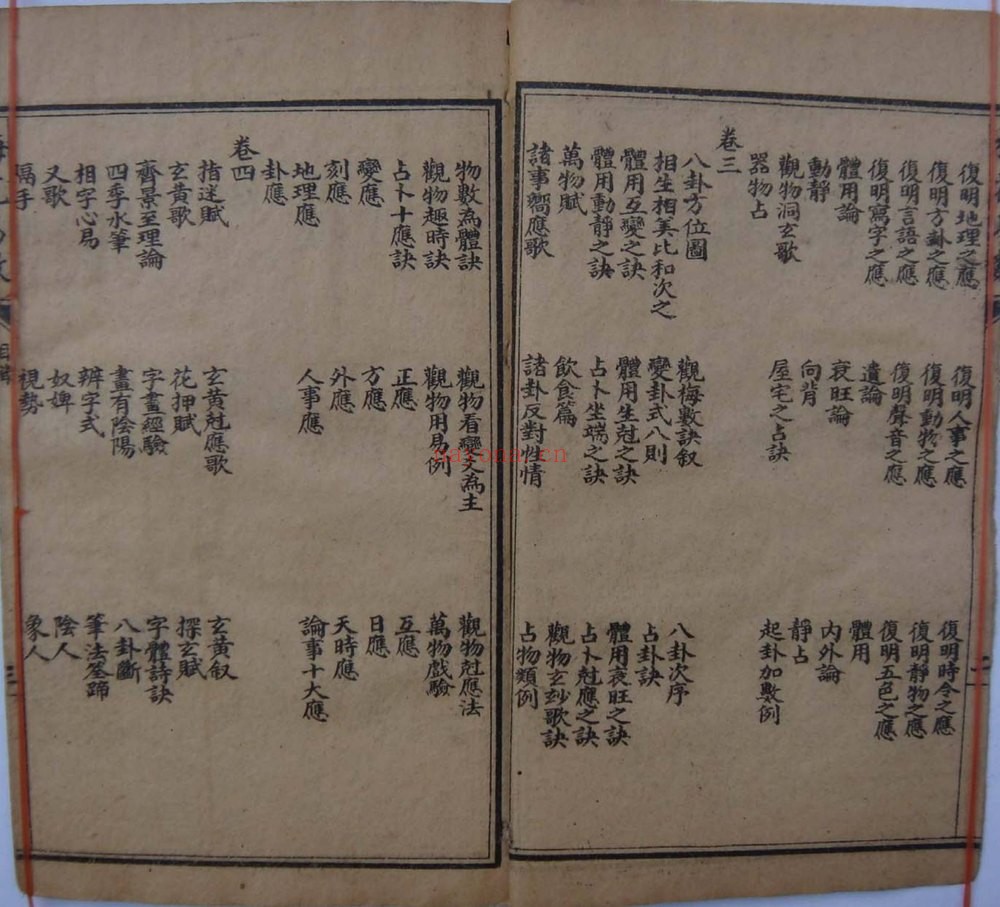 復明地理之應 復明人事之應 復明時令之應
復明方卦之應 復明動物之應 復明靜物之應
復明言語之應 復明聲音之應 復明五色之應
復明寫字之應 遺論 體用
體用論 衰旺論 內外論
動靜 向背 靜占
觀物洞玄歌 屋宅之占訣 起卦加數例
器物占
卷三
八卦方位圖 觀梅數訣叙 八卦次序
相生相美比和次之 變卦式八則 占卦訣
體用互變之訣 體用生尅之訣 體用衰旺之訣
體用動靜之訣 占卜坐端之訣 占卜尅應之訣
萬物賦 飲食篇 觀物玄妙歌訣
諸事嚮應歌 諸卦反對性情 占物類例
物數為體訣 觀物看變爻為主 觀物尅應法
觀物趣時訣 觀物用易例 萬物戲驗
占卜十應訣 正應 互應
變應 方應 日應
刻應 外應 天時應
地理應 人事應 論事十大應
卦應
卷四
指迷賦 玄黃尅應歌 玄黃叙
玄黃歌 花押賦 探玄賦
齊景至理論 字畫經驗 字體詩訣
四季水筆 畫有陰陽 八卦斷
相字心易 辨字式 筆法筌蹄
又歌 奴婢 陰人
隔手 視勢 象人
nayona.cn